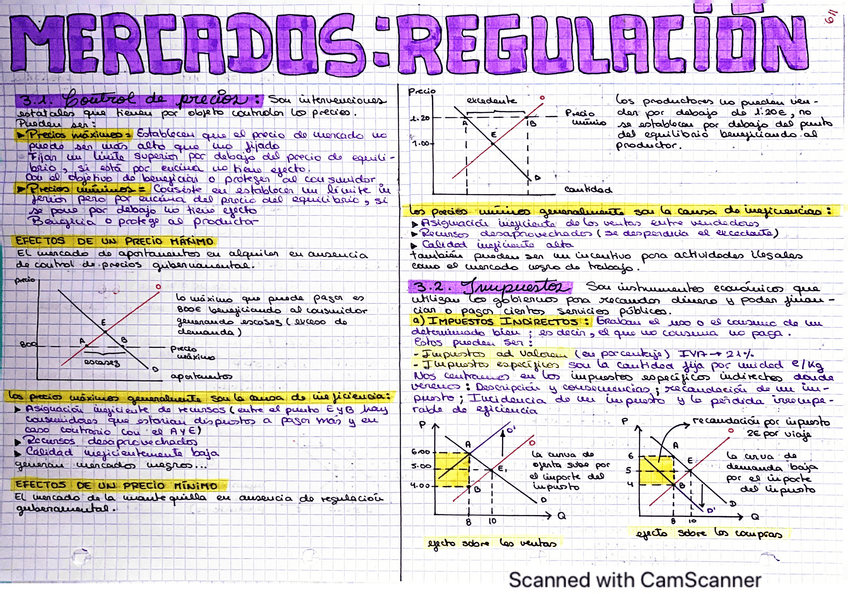 MERCADOS: REGULACIÓN
3.1. Control de precios: Son intervenciones
estatales que tienen por objeto controlar los precios.
Pueden ser:
▸ Precios máximos: Establecen que el precio de mercado no
puede ser más alto que uno fijado
Fijan un límite superior por debajo del precio de equili-
brio, si está por encima no tiene efecto.
Con el objetivo de beneficiar o proteger al consumidor
▸ Precios mínimos = Consiste en establecer un límite in
ferior pero por encima del precio del equilibrio, si
se pone por debajo no tiene efecto
Beneficia o protege al productor
EFECTOS DE UN PRECIO MÁXIMO
El mercado de apartamentos en alquiler en ausencia
de control de precios gubernamental.
precio
O
E
800
A
B
escasez
D
precio
máximo
apartamentos
lo máximo que puede pagar es
800€ beneficiando al consumidor
generando escasez (exceso de
demanda)
los precios máximos generalmente son la causa de ineficiencia:
▸ Asignación ineficiente de recursos (entre el punto E y B hay
consumidores que estarían dispuestos a pagar más y en
caso contrario con el A y E)
▸ Recursos desaprovechados
▸ Calidad ineficientemente baja
generan mercados negros...
EFECTOS DE UN PRECIO MÍNIMO
El mercado de la mantequilla en ausencia de regulación
gubernamental.
Precio
excedente
O
1.20
A
B
Precio
mínimo
1.00
E
D
cantidad
los productores no pueden ven-
der por debajo de 1.20€, no
se establecen por debajo del punto
del equilibrio beneficiando al
productor.
los precios mínimos generalmente son la causa de ineficiencias:
▸ Asignación ineficiente de las ventas entre vendedores
▸ Recursos desaprovechados (se desperdicia el excedente)
▸ Calidad ineficiente alta
también pueden ser un incentivo para actividades ilegales
como el mercado negro de trabajo.
3.2. Impuestos Son instrumentos económicos que
utilizan los gobiernos para recaudar dinero y poder finan-
ciar o pagar ciertos servicios públicos.
a) IMPUESTOS INDIRECTOS: Graban el uso o el consumo de un
determinado bien; es decir, el que no consuma no paga.
Estos pueden ser:
- Impuestos ad valorem (en porcentaje) IVA → 21%
- Impuestos específicos son la cantidad fija por unidad €/Kg
Nos centramos en los impuestos específicos indirectos donde
veremos: Descripción y consecuencias; recaudación de un im-
puesto; Incidencia de un impuesto y la pérdida irrecupe-
rable de eficiencia
P
O'
O
A
6.00
5.00
E₁
4.00
B
D
8
10
Q
la curva de
oferta sube por
el importe del
impuesto
efecto sobre las ventas
P
recaudación por impuesto
2€ por viaje
O
A
6
5
E
4
B
D
D'
8
10
Q
la curva de
demanda baja
por el importe
del impuesto
efecto sobre las compras
Scanned with CamScanner